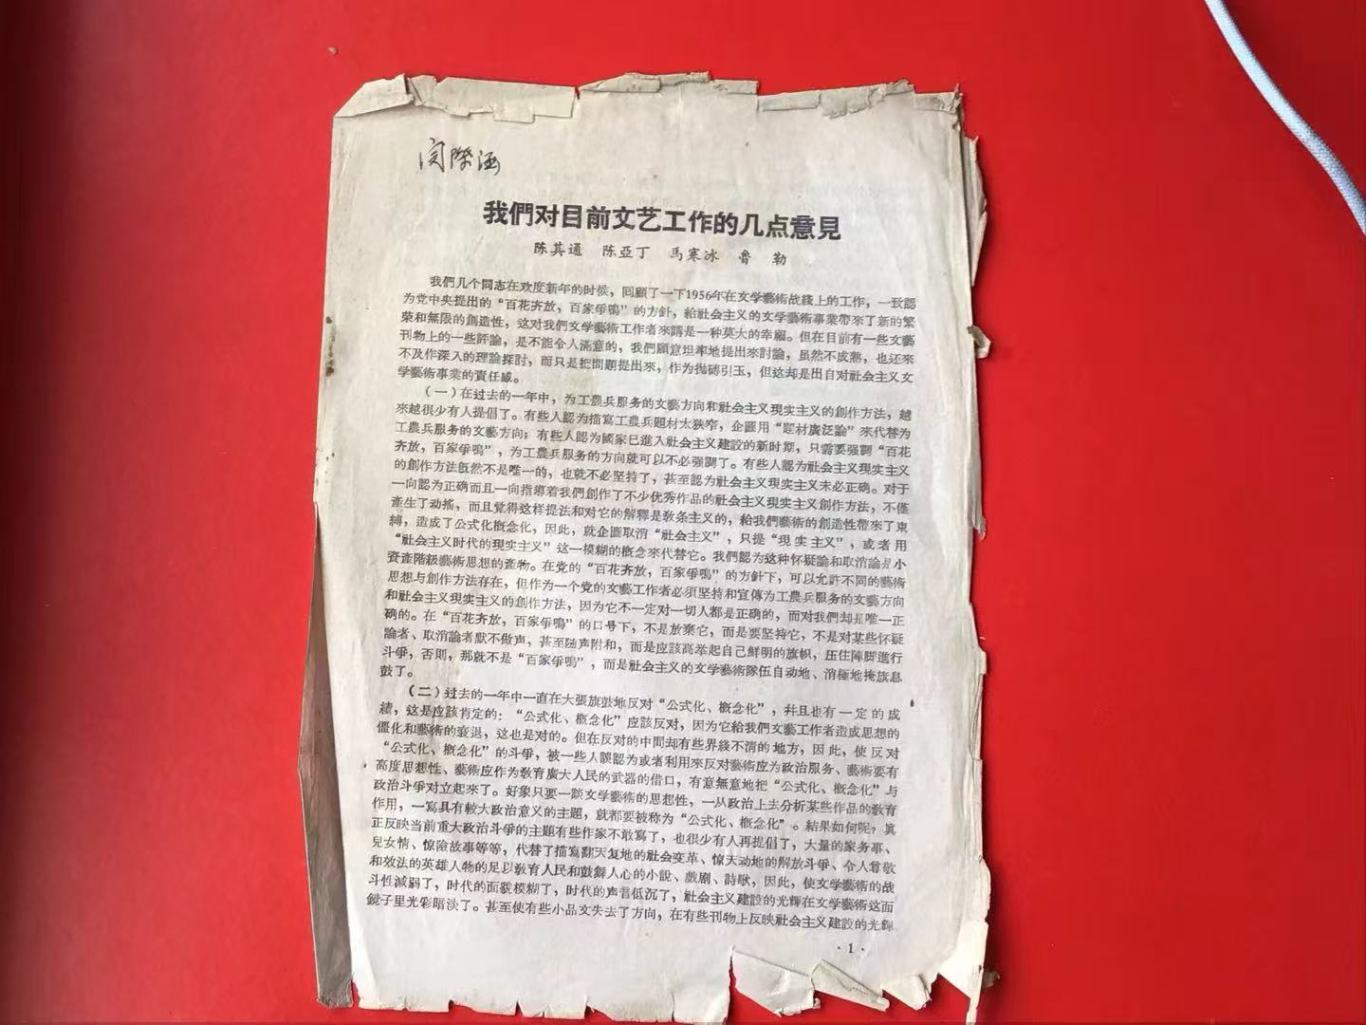 我們对目前文艺工作的几点意見
陈其通 陈亞丁 馬寒冰 魯 勒
我們几个同志在欢度新年的时候，回顧了一下1956年在文学藝術战綫上的工作，一致認
为党中央提出的“百花齐放，百家爭鳴”的方針，給社会主义的文学藝術事業帶來了新的繁
荣和無限的創造性，这对我們文学藝術工作者來講是一种莫大的幸福。但在目前有一些文藝
刊物上的一些評論，是不能令人滿意的，我們願意坦率地提出來討論，虽然不成熟，也还來
不及作深入的理論探討，而只是把問題提出來，作为抛磚引玉，但这却是出自对社会主义文
学藝術事業的責任感。
（一）在过去的一年中，为工農兵服务的文藝方向和社会主义現实主义的創作方法，越
來越很少有人提倡了。有些人認为描寫工農兵題材太狹窄，企圖用“題材廣泛論”來代替为
工農兵服务的文藝方向；有些人認为國家已進入社会主义建設的新时期，只需要强調“百花
齐放，百家爭鳴”，为工農兵服务的方向就可以不必强調了。有些人認为社会主义現实主义
的創作方法旣然不是唯一的，也就不必坚持了，甚至認为社会主义現实主义未必正确。对于
一向認为正确而且一向指導着我們創作了不少优秀作品的社会主义現实主义創作方法，不僅
產生了动搖，而且覚得这样提法和对它的解釋是敎条主义的，給我們藝術的創造性帶來了束
縛，造成了公式化概念化，因此，就企圖取消“社会主义”，只提“現实主义”，或者用
“社会主义时代的現实主义”这一模糊的概念來代替它。我們認为这种怀疑論和取消論是小
資產階級藝術思想的產物。在党的“百花齐放，百家爭鳴”的方針下，可以允許不同的藝術
思想与創作方法存在，但作为一个党的文藝工作者必須坚持和宣傳为工農兵服务的文藝方向
和社会主义現实主义的創作方法，因为它不一定对一切人都是正确的，而对我們却是唯一正
确的。在“百花齐放，百家爭鳴”的口号下，不是放棄它，而是要坚持它，不是对某些怀疑
論者、取消論者默不做声、甚至随声附和，而是应該高举起自己鮮明的旗帜，压住陣脚進行
斗爭，否則，那就不是“百家爭鳴”，而是社会主义的文学藝術隊伍自动地、消極地掩旗息
鼓了。
（二）过去的一年中一直在大張旗鼓地反对“公式化、概念化”，幷且也有一定的成
績，这是应該肯定的：“公式化、概念化”应該反对，因为它給我們文藝工作者造成思想的
僵化和藝術的衰退，这也是对的。但在反对的中間却有些界綫不清的地方，因此，使反对
“公式化、概念化”的斗爭，被一些人誤認为或者利用來反对藝術应为政治服务、藝術要有
高度思想性、藝術应作为敎育廣大人民的武器的借口，有意無意地把“公式化、概念化”与
政治斗爭对立起來了。好象只要一談文学藝術的思想性，一从政治上去分析某些作品的敎育
作用，一寫具有較大政治意义的主題，就都要被称为“公式化、概念化”。結果如何呢？真
正反映当前重大政治斗爭的主題有些作家不敢寫了，也很少有人再提倡了，大量的家务事、
兒女情、惊險故事等等，代替了描寫翻天复地的社会变革、惊天动地的解放斗爭、令人尊敬
和效法的英雄人物的足以敎育人民和鼓舞人心的小說、戲剧、詩歌，因此，使文学藝術的战
斗性減弱了，时代的面貌模糊了，时代的声音低沉了，社会主义建設的光輝在文学藝術这面
鏡子里光彩暗淡了。甚至使有些小品文失去了方向，在有些刊物上反映社会主义建設的光輝
·1·